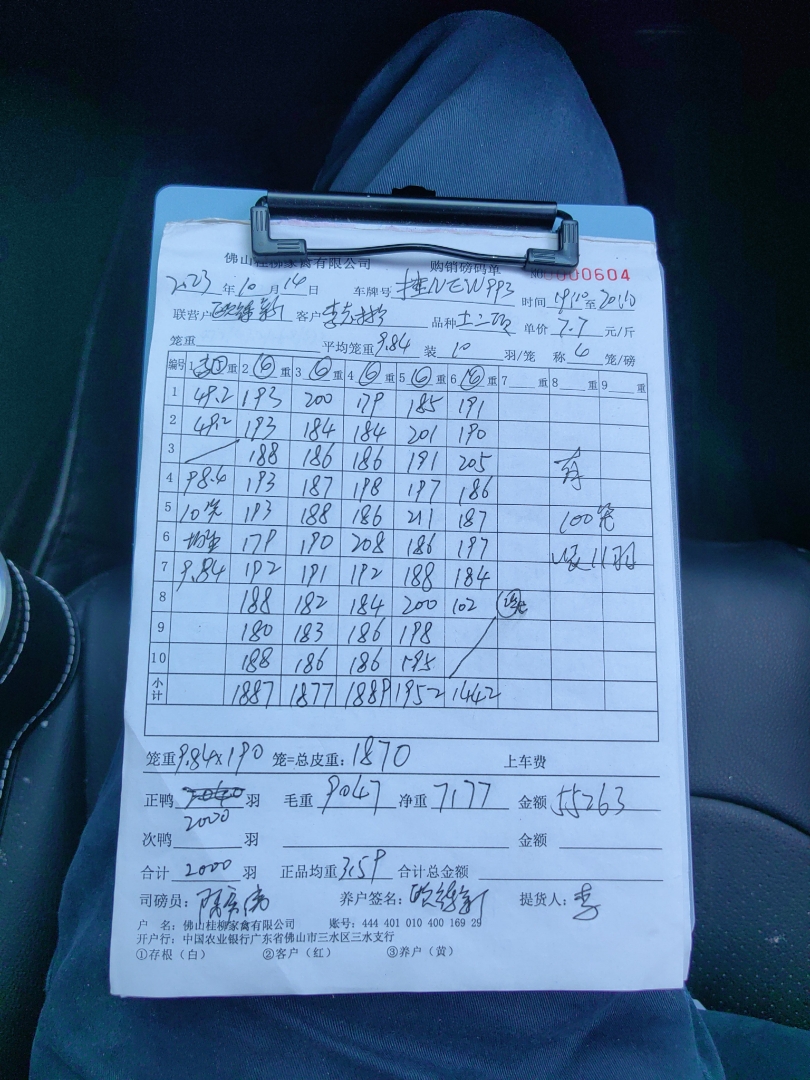 佛山桂柳家禽有限公司 购销磅码单 NO 0000604
2023年10月14日 车牌号 挂NEW993 时间 19:10至20:10
联营户 客户 品种 土二 单价 7.7 元/斤
笼重 平均笼重 9.84 装 10 羽/笼 称 6 笼/磅
编号 1 ⑤ 重 2 ⑥ 重 3 ⑥ 重 4 ⑥ 重 5 ⑥ 重 6 ⑥ 重 7 重 8 重 9 重
1 49.2 193 200 179 185 191
2 49.2 193 184 184 201 190
3 188 186 186 191 205 有
4 98.4 193 187 198 197 186
5 10笼 193 188 186 211 187 100笼
6 均重 179 190 208 186 197 装11羽
7 9.84 192 191 192 188 184
8 188 182 184 200 102
9 180 183 186 198
10 188 186 186 195
小计 1887 1877 1889 1952 1442
笼重 9.84×190 笼=总皮重: 1870 上车费
正鸭 2000 羽 毛重 9047 净重 7177 金额 55263
次鸭 羽 金额
合计 2000 羽 正品均重 3.59 合计总金额
司磅员: 养户签名: 提货人: 李
户 名: 佛山桂柳家禽有限公司 账号: 444 401 010 400 169 29
开户行: 中国农业银行广东省佛山市三水区三水支行
①存根（白） ②客户（红） ③养户（黄）